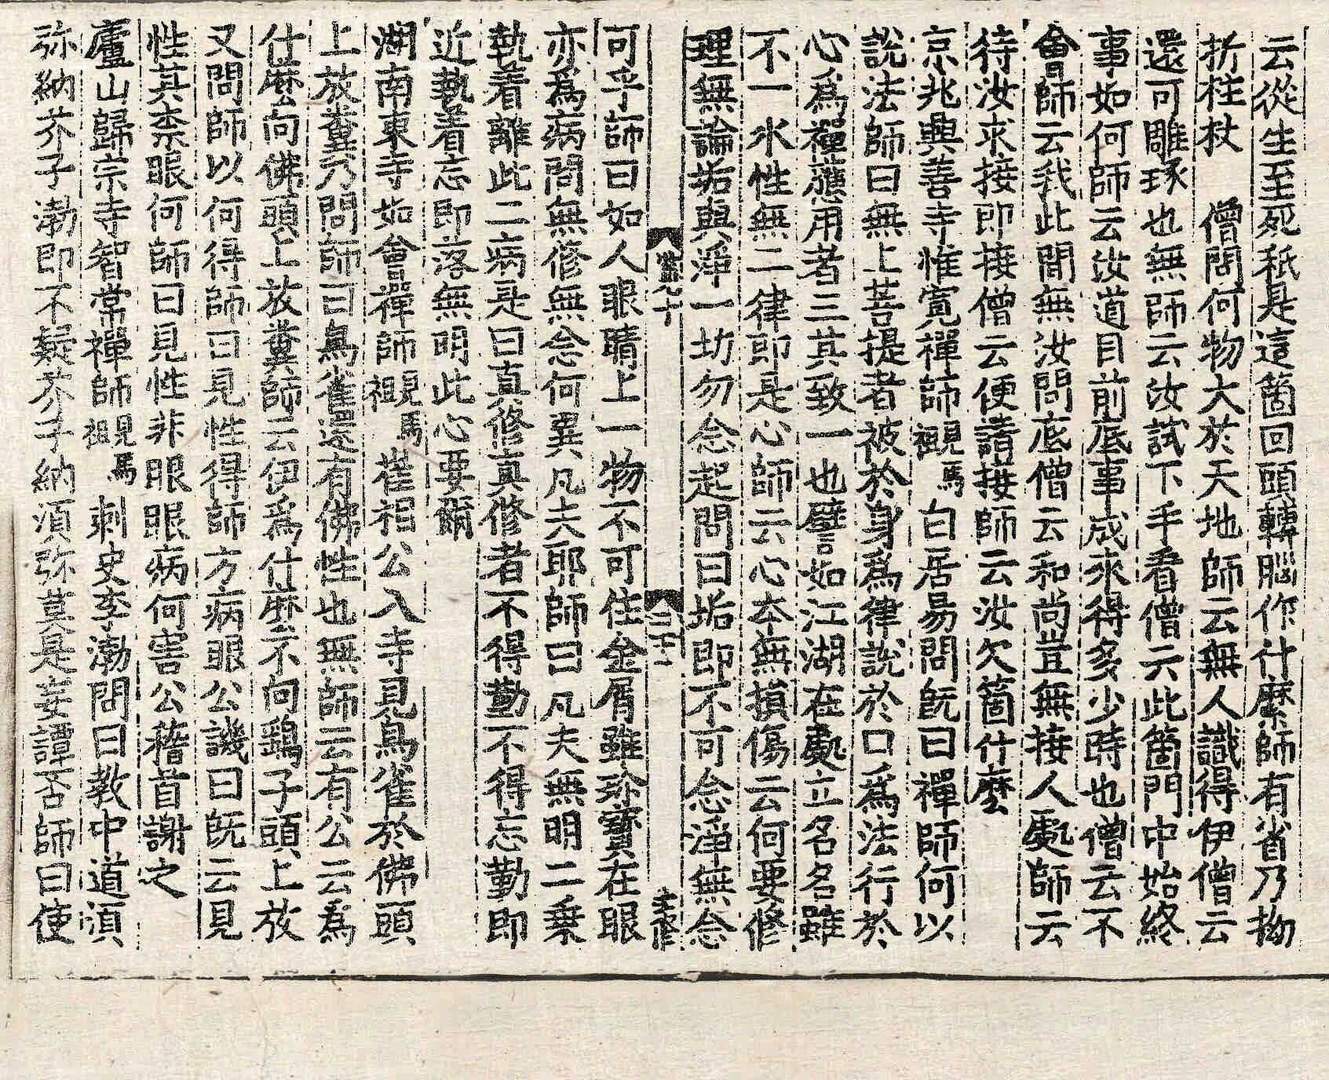 云從生至死秖是這箇回頭轉腦作什麽師有省乃拗
折柱杖　僧問何物大於天地師云無人識得伊僧云
還可雕琢也無師云汝試下手看僧云此箇門中始終
事如何師云汝道目前底事成來得多少時也僧云不
會師云我此間無汝問底僧云和尚豈無接人處師云
待汝求接即接僧云便請接師云汝欠箇什麽
京兆興善寺惟寬禪師親馬祖　白居易問旣曰禪師何以
說法師曰無上菩提者被於身爲律說於口爲法行於
心爲禪應用者三其致一也譬如江湖在處立名名雖
不一水性無二律即是心師云心本無損傷云何要修
理無論垢與淨一切勿念起問曰垢即不可念淨無念
可乎師曰如人眼睛上一物不可住金屑雖珍寶在眼
亦爲病問無修無念何異凡夫耶師曰凡夫無明二乗
執着離此二病是曰真修真修者不得勤不得忘勤即
近執着忘即落無明此心要爾
湖南東寺如會禪師親馬祖　崔相公入寺見鳥雀於佛頭
上放糞乃問師曰鳥雀還有佛性也無師云有公云爲
什麽向佛頭上放糞師云伊爲什麽不向鷂子頭上放
又問師以何得師曰見性得師方病眼公譏曰旣云見
性其柰眼何師曰見性非眼眼病何害公稽首謝之
廬山歸宗寺智常禪師見馬祖　刺史李渤問曰教中道湏
弥納芥子渤即不疑芥子納湏弥莫是妄譚否師曰使